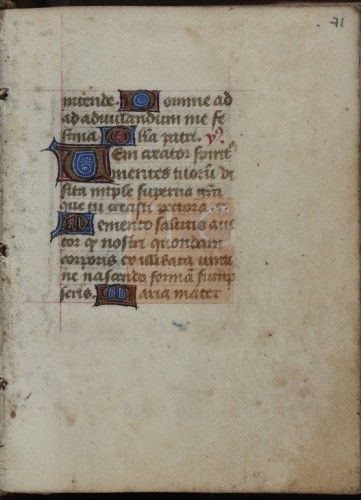 71
intende. Domine ad
ad adiuuandum me fe
stina. Glla patri. ym9
Veni creator spirit9
mentes tuorū vi
sita imple superna grā
que tu creasti pectora.
Memento salutis auc
tor q nostri quondam
corporis ex illibata uirgi
ne nascendo formā sump
seris. Maria mater